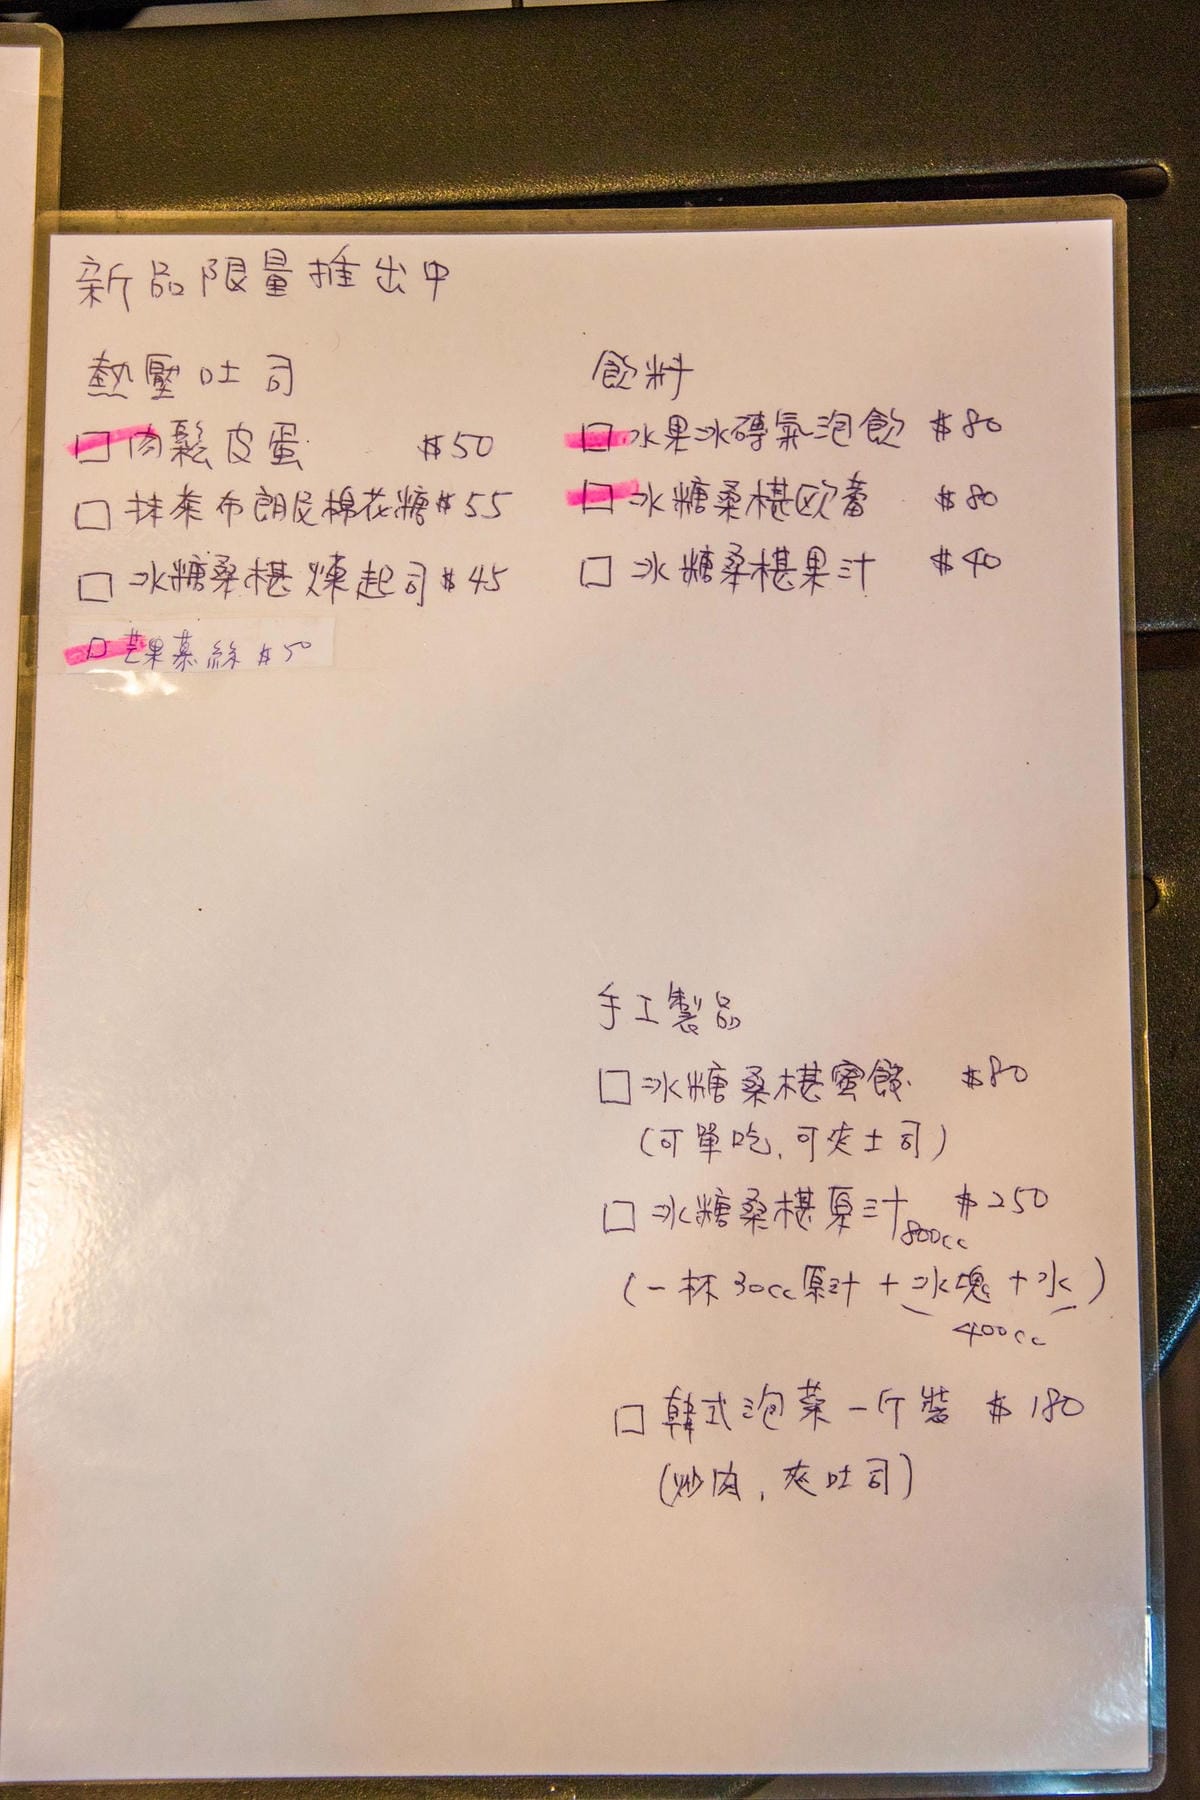 新品限量推出中
熱壓吐司
□ 肉鬆皮蛋 $50
□ 抹茶布朗尼棉花糖 $55
□ 冰糖桑椹煉起司 $45
□ 芒果慕絲 $50
飲料
□ 水果冰磚氣泡飲 $80
□ 冰糖桑椹欧蕾 $80
□ 冰糖桑椹果汁 $40
手工製品
□ 冰糖桑椹蜜餞 $80
(可單吃,可夾土司)
□ 冰糖桑椹原汁 800cc $250
(一杯30cc原汁+冰塊+水)
400cc
□ 韓式泡菜一斤裝 $180
(炒肉,夾吐司)